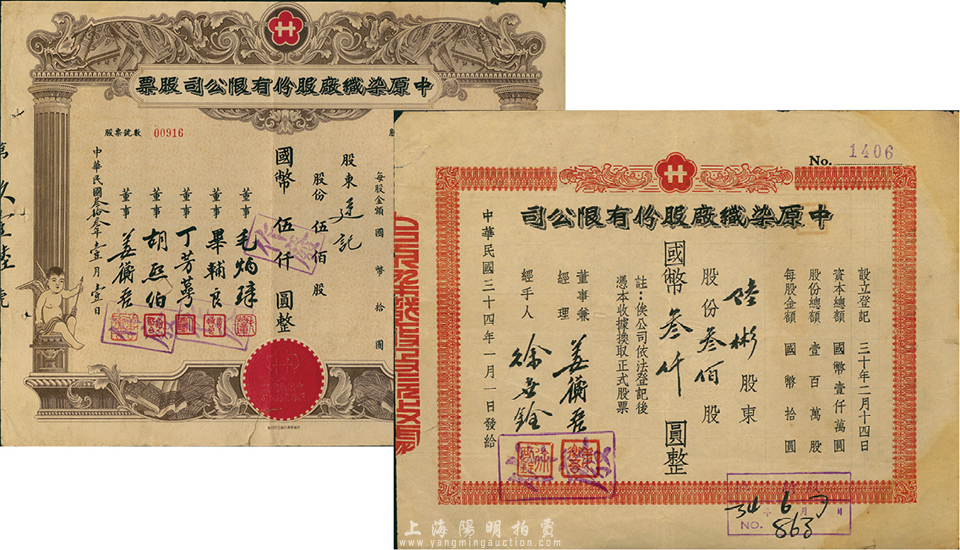 中原染織廠股份有限公司股票
股票號數 00916
每股金額國幣拾圓
股東
股份伍佰股
國幣伍仟圓整
董事 毛炳璋
董事 畢輔良
董事 丁芳萼
董事 胡熙伯
董事
中華民國叁拾年壹月壹日
No. 1406
中原染織廠股份有限公司
設立登記 三十年二月十四日
資本總額 國幣壹仟萬圓
股份總額 壹百萬股
每股金額 國幣拾圓
陸彬股東
股份叁佰股
國幣叁仟圓整
註：俟公司依法登記後
憑本收據換取正式股票
董事兼經理
經手人 徐世銓
中華民國三十四年一月一日發給
34年6月 日
NO. 863
上海陽明拍賣
www.yangmingauction.com